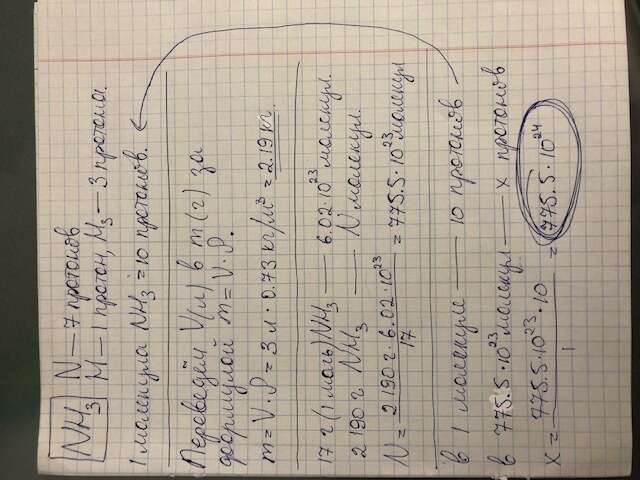 NH3
N — 7 протонов
H — 1 протон, H3 — 3 протона.
1 молекула NH3 = 10 протонов.
Переведём V(л) в m(г) за
формулой m = V · ρ.
m = V · ρ = 3 л · 0.73 кг/м³ = 2.19 кг.
17 г (1 моль) NH3 — 6.02·10²³ молекул.
2 190 г NH3 — N молекул.
N = 2 190 г · 6.02 · 10²³ / 17 = 775.5 · 10²³ молекул
в 1 молекуле — 10 протонов
в 775.5 · 10²³ молекул — x протонов
x = 775.5 · 10²³ · 10 / 1 = 775.5 · 10²⁴